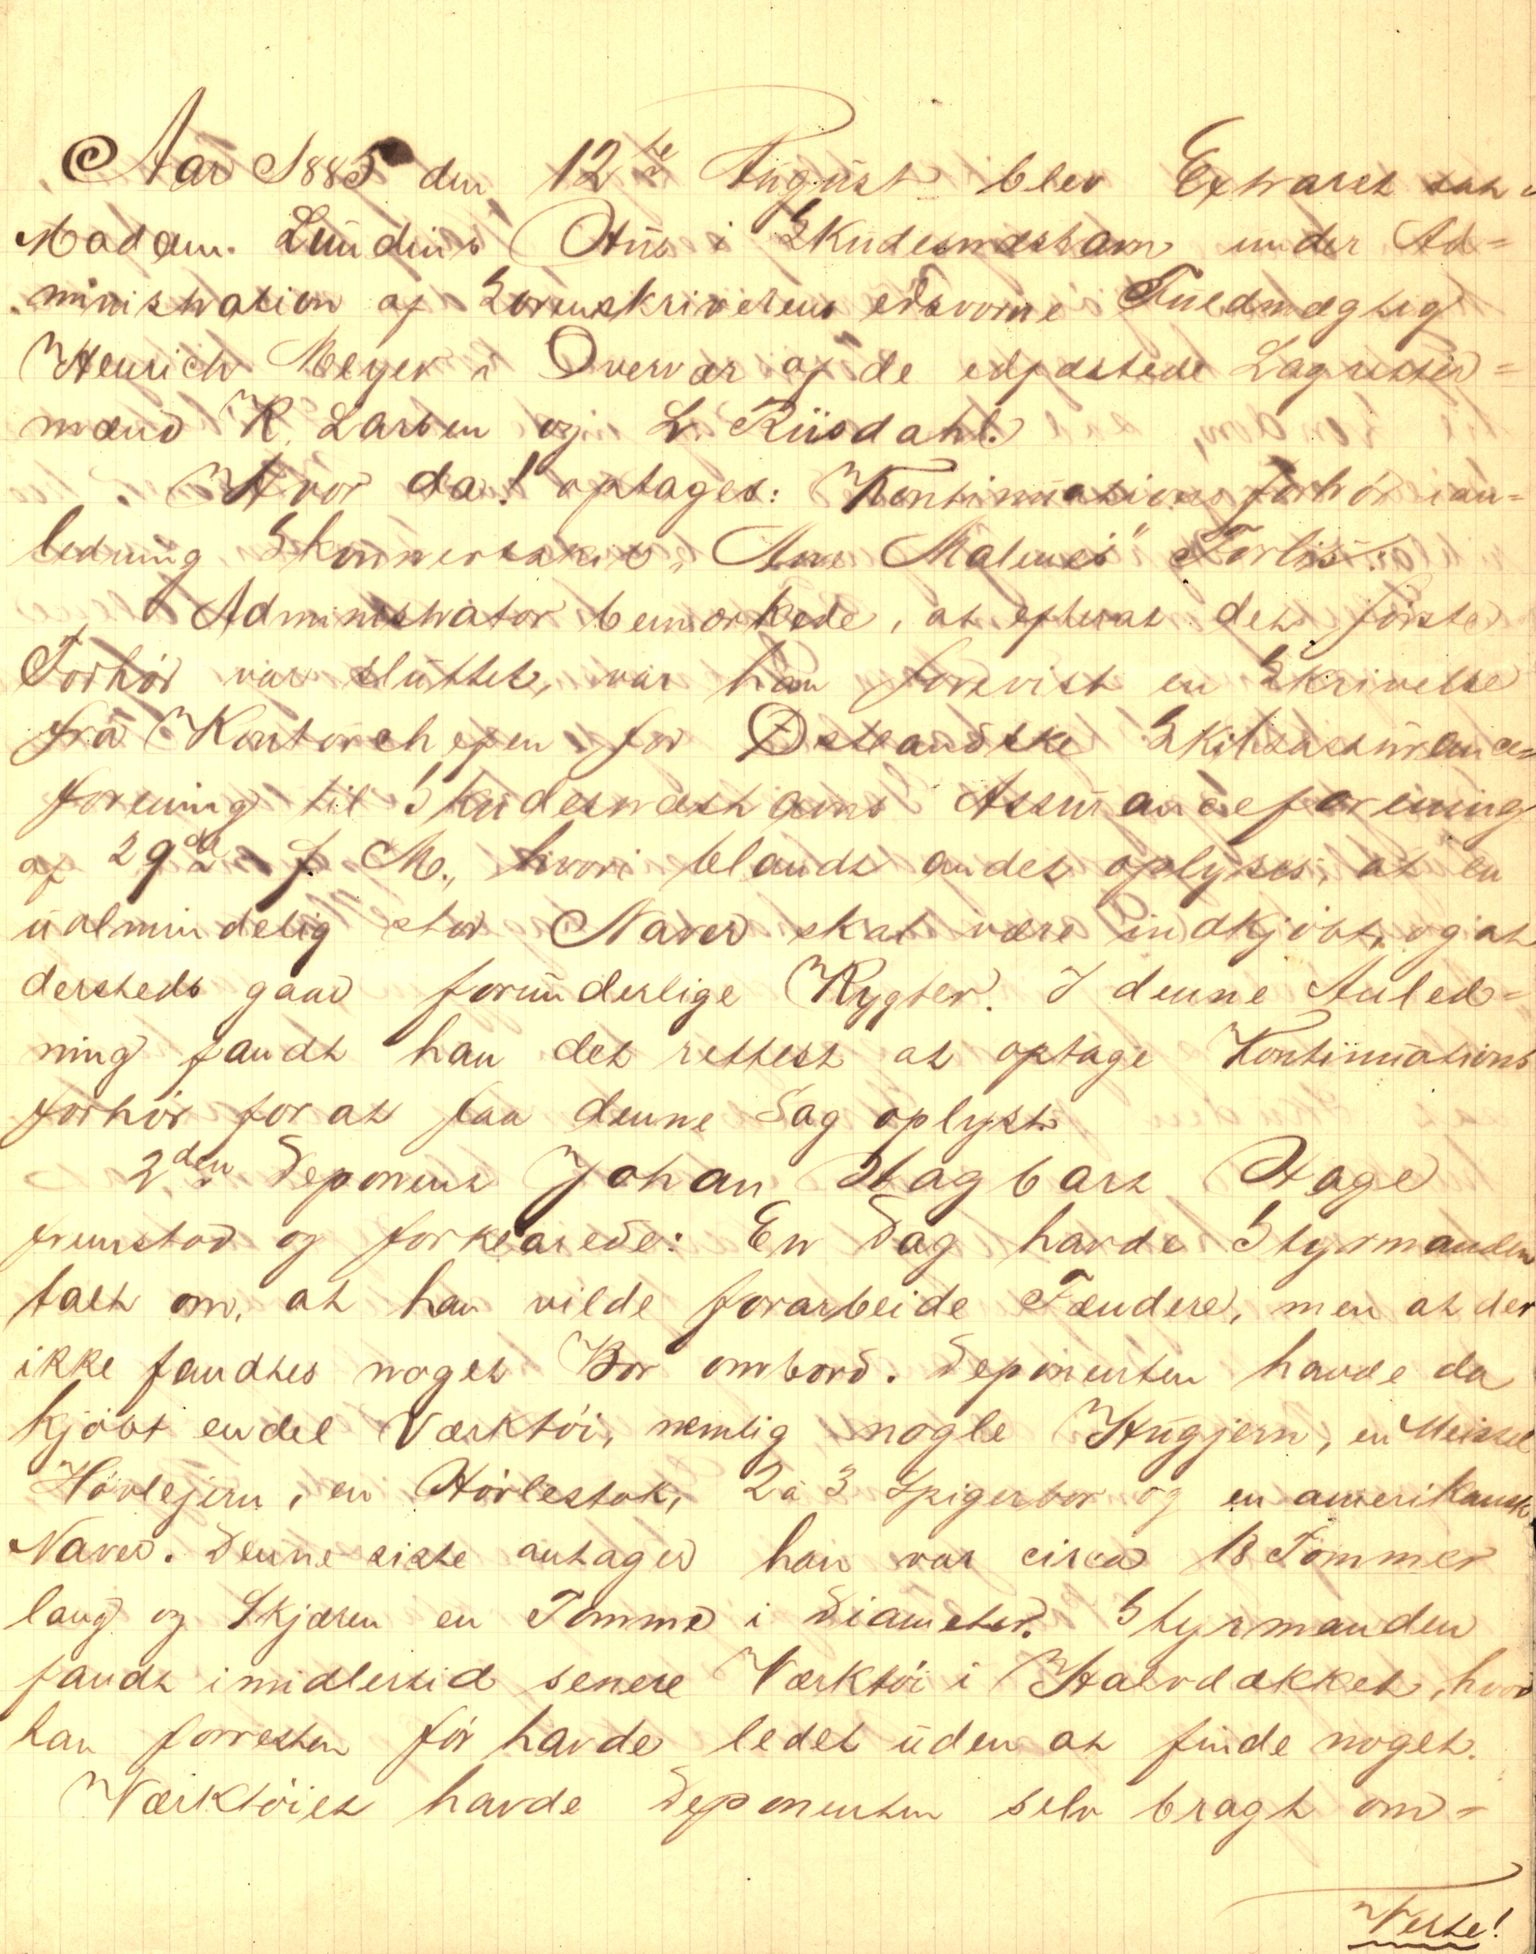 Aar 1885 den 12te August blev Extraret sat i
Madam. Lundins Hus i Skudesnæshavn under Ad=
ministration af Sorenskriverens edsvorne Fuldmægtig
Henrich Meyer i Overvær af de edfæstede Lagrettes=
mænd K. Larsen og L. Riisdahl.
Hvor da! optages: Kontinuationsforhör i an=
ledning Skonnertskib „Ane Malenes" Forlis:
Administrator bemærkede, at efterat det förste
Forhör var sluttet, var han forevist en Skrivelse
fra Kontorchefen for Östlandske Skibsassurance=
forening til Skudesneshavns Assuranceforening
af 29de f. M., hvori blandt andet oplyses, at en
ualmindelig stor Naver skal være indkjöbt, og at
dersteds gaar forunderlige Rygter. I denne Anled=
ning fandt han det rettest at optage Kontinuations
forhör for at faa denne Sag oplyst.
2den Deponent Johan Hagbart Hage
fremstod og forklarede: En Dag havde Styrmanden
talt om, at han vilde forarbeide Fændere, men at der
ikke fandtes noget Bor ombord. Deponenten havde da
kjöbt endel Værktöi, nemlig nogle Hugjern, en Meissel
Hövlejern, en Hövlestok, 2 à 3 Spigerbor og en amerikansk
Naver. Denne siste antager han var circa 18 Tommer
lang og Skjæren en Tomme i Diameter. Styrmanden
fandt imidlertid senere Værktöi i Halvdækket, hvor
han forresten för havde ledet uden at finde noget.
Værktöiet havde Deponenten selv bragt om=
Verte!